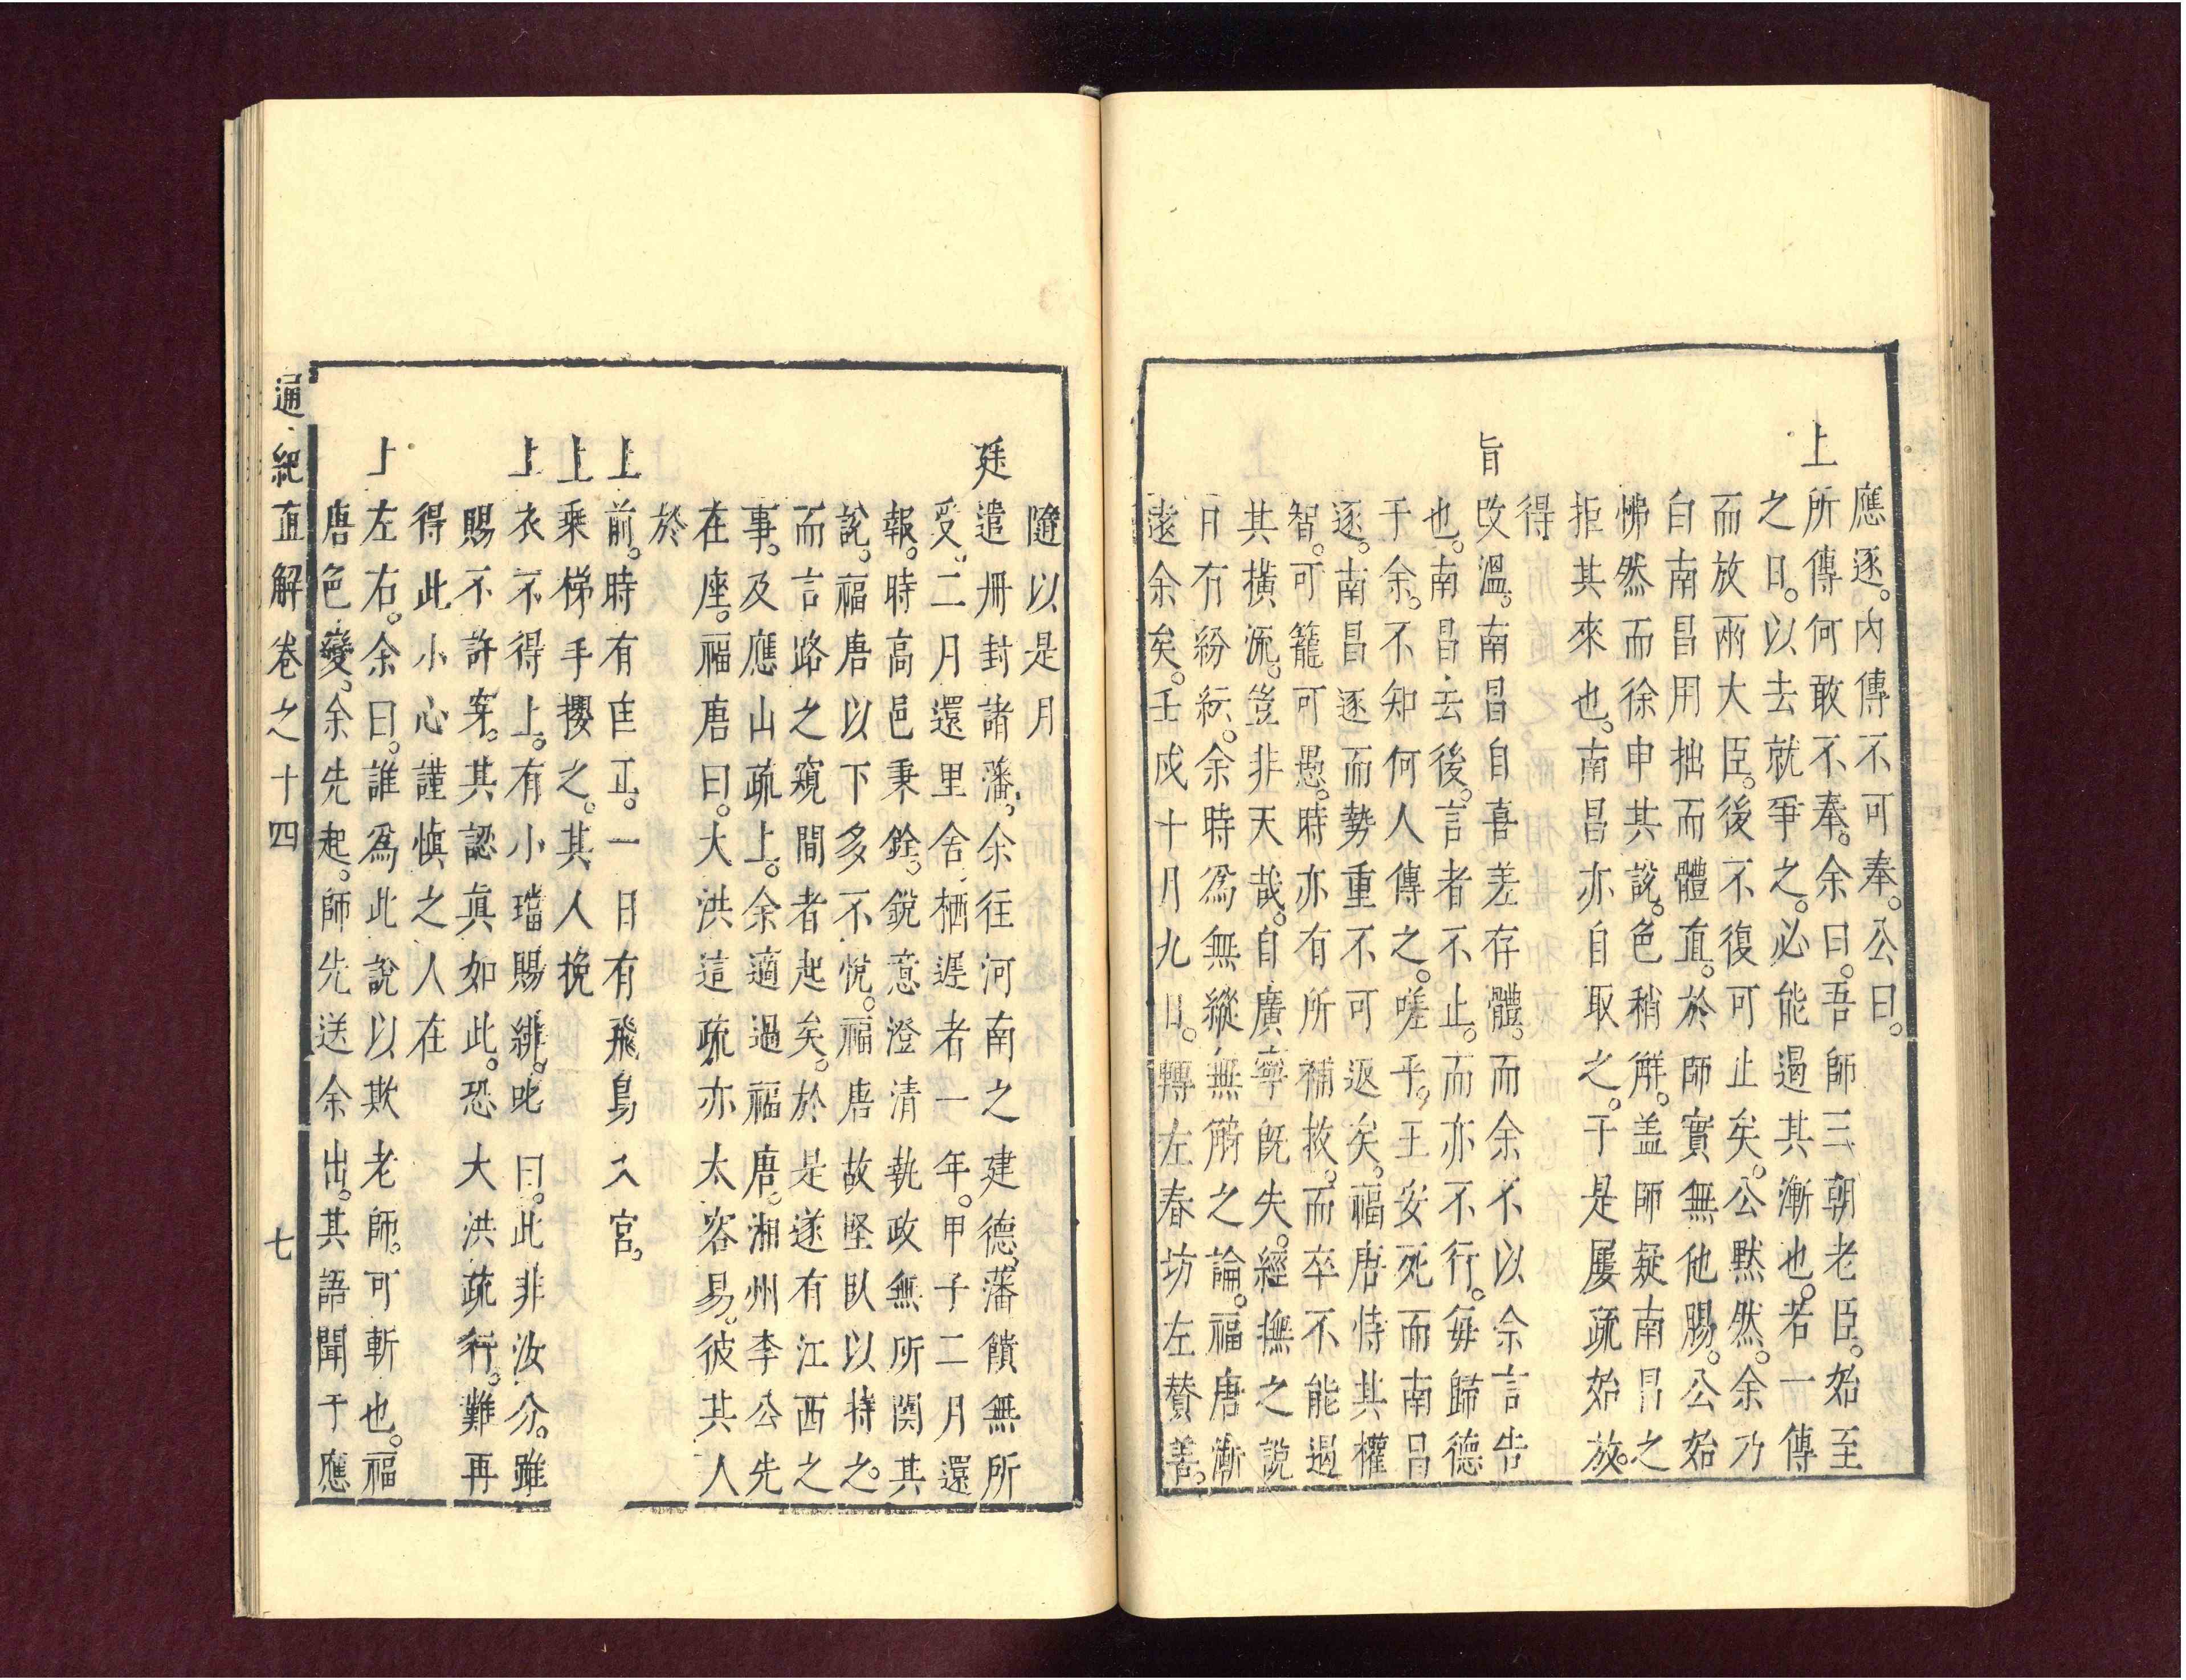 應逐。內傳不可奉。公曰。
上所傳何敢不奉。余曰。吾師三朝老臣。始至
之日。以去就爭之。必能遏其漸也。若一傳
而放兩大臣。後不復可止矣。公默然。余乃
白南昌用拙而體直。於師實無他腸。公始
怫然而徐申其說。色稍解。盖師疑南昌之
拒其來也。南昌亦自取之。于是屢疏始放。
得
旨改溫。南昌自喜差存體。而余不以余言告
也。南昌去後。言者不止。而亦不行。每歸德
于余。不知何人傳之。嗟乎。王安死而南昌
逐。南昌逐而勢重不可返矣。福唐恃其權
智。可籠可愚。時亦有所補救。而卒不能遏
其橫流。豈非天哉。自廣寧旣失。經撫之說
日有紛紜。余時爲無縱無縱之論。福唐漸
遠余矣。壬戌十月九日。轉左春坊左贊善。
隨以是月
廷遣冊封諸藩。余往河南之建德。藩饋無所
受。二月還里舍栖遲者一年。甲子二月還
報。時高邑秉銓。銳意澄清執政無所關其
說。福唐以下多不悅。福唐故堅臥以持之。
而言路之窺間者起矣。於是遂有江西之
事。及應山疏上。余適過福唐。湘州李公先
在座。福唐曰。大洪這疏亦太容易。彼其人
於
上前。時有匡正。一日有飛鳥入宮。
上乘梯手攖之。其人挽
上衣不得上。有小璫賜緋。叱曰。此非汝分。雖
賜不許穿。其認眞如此。恐大洪疏行。難再
得此小心謹慎之人在
上左右。余曰。誰爲此說以欺老師。可斬也。福
唐色變。余先起。師先送余出。其語聞于應
通紀直解卷之十四　七